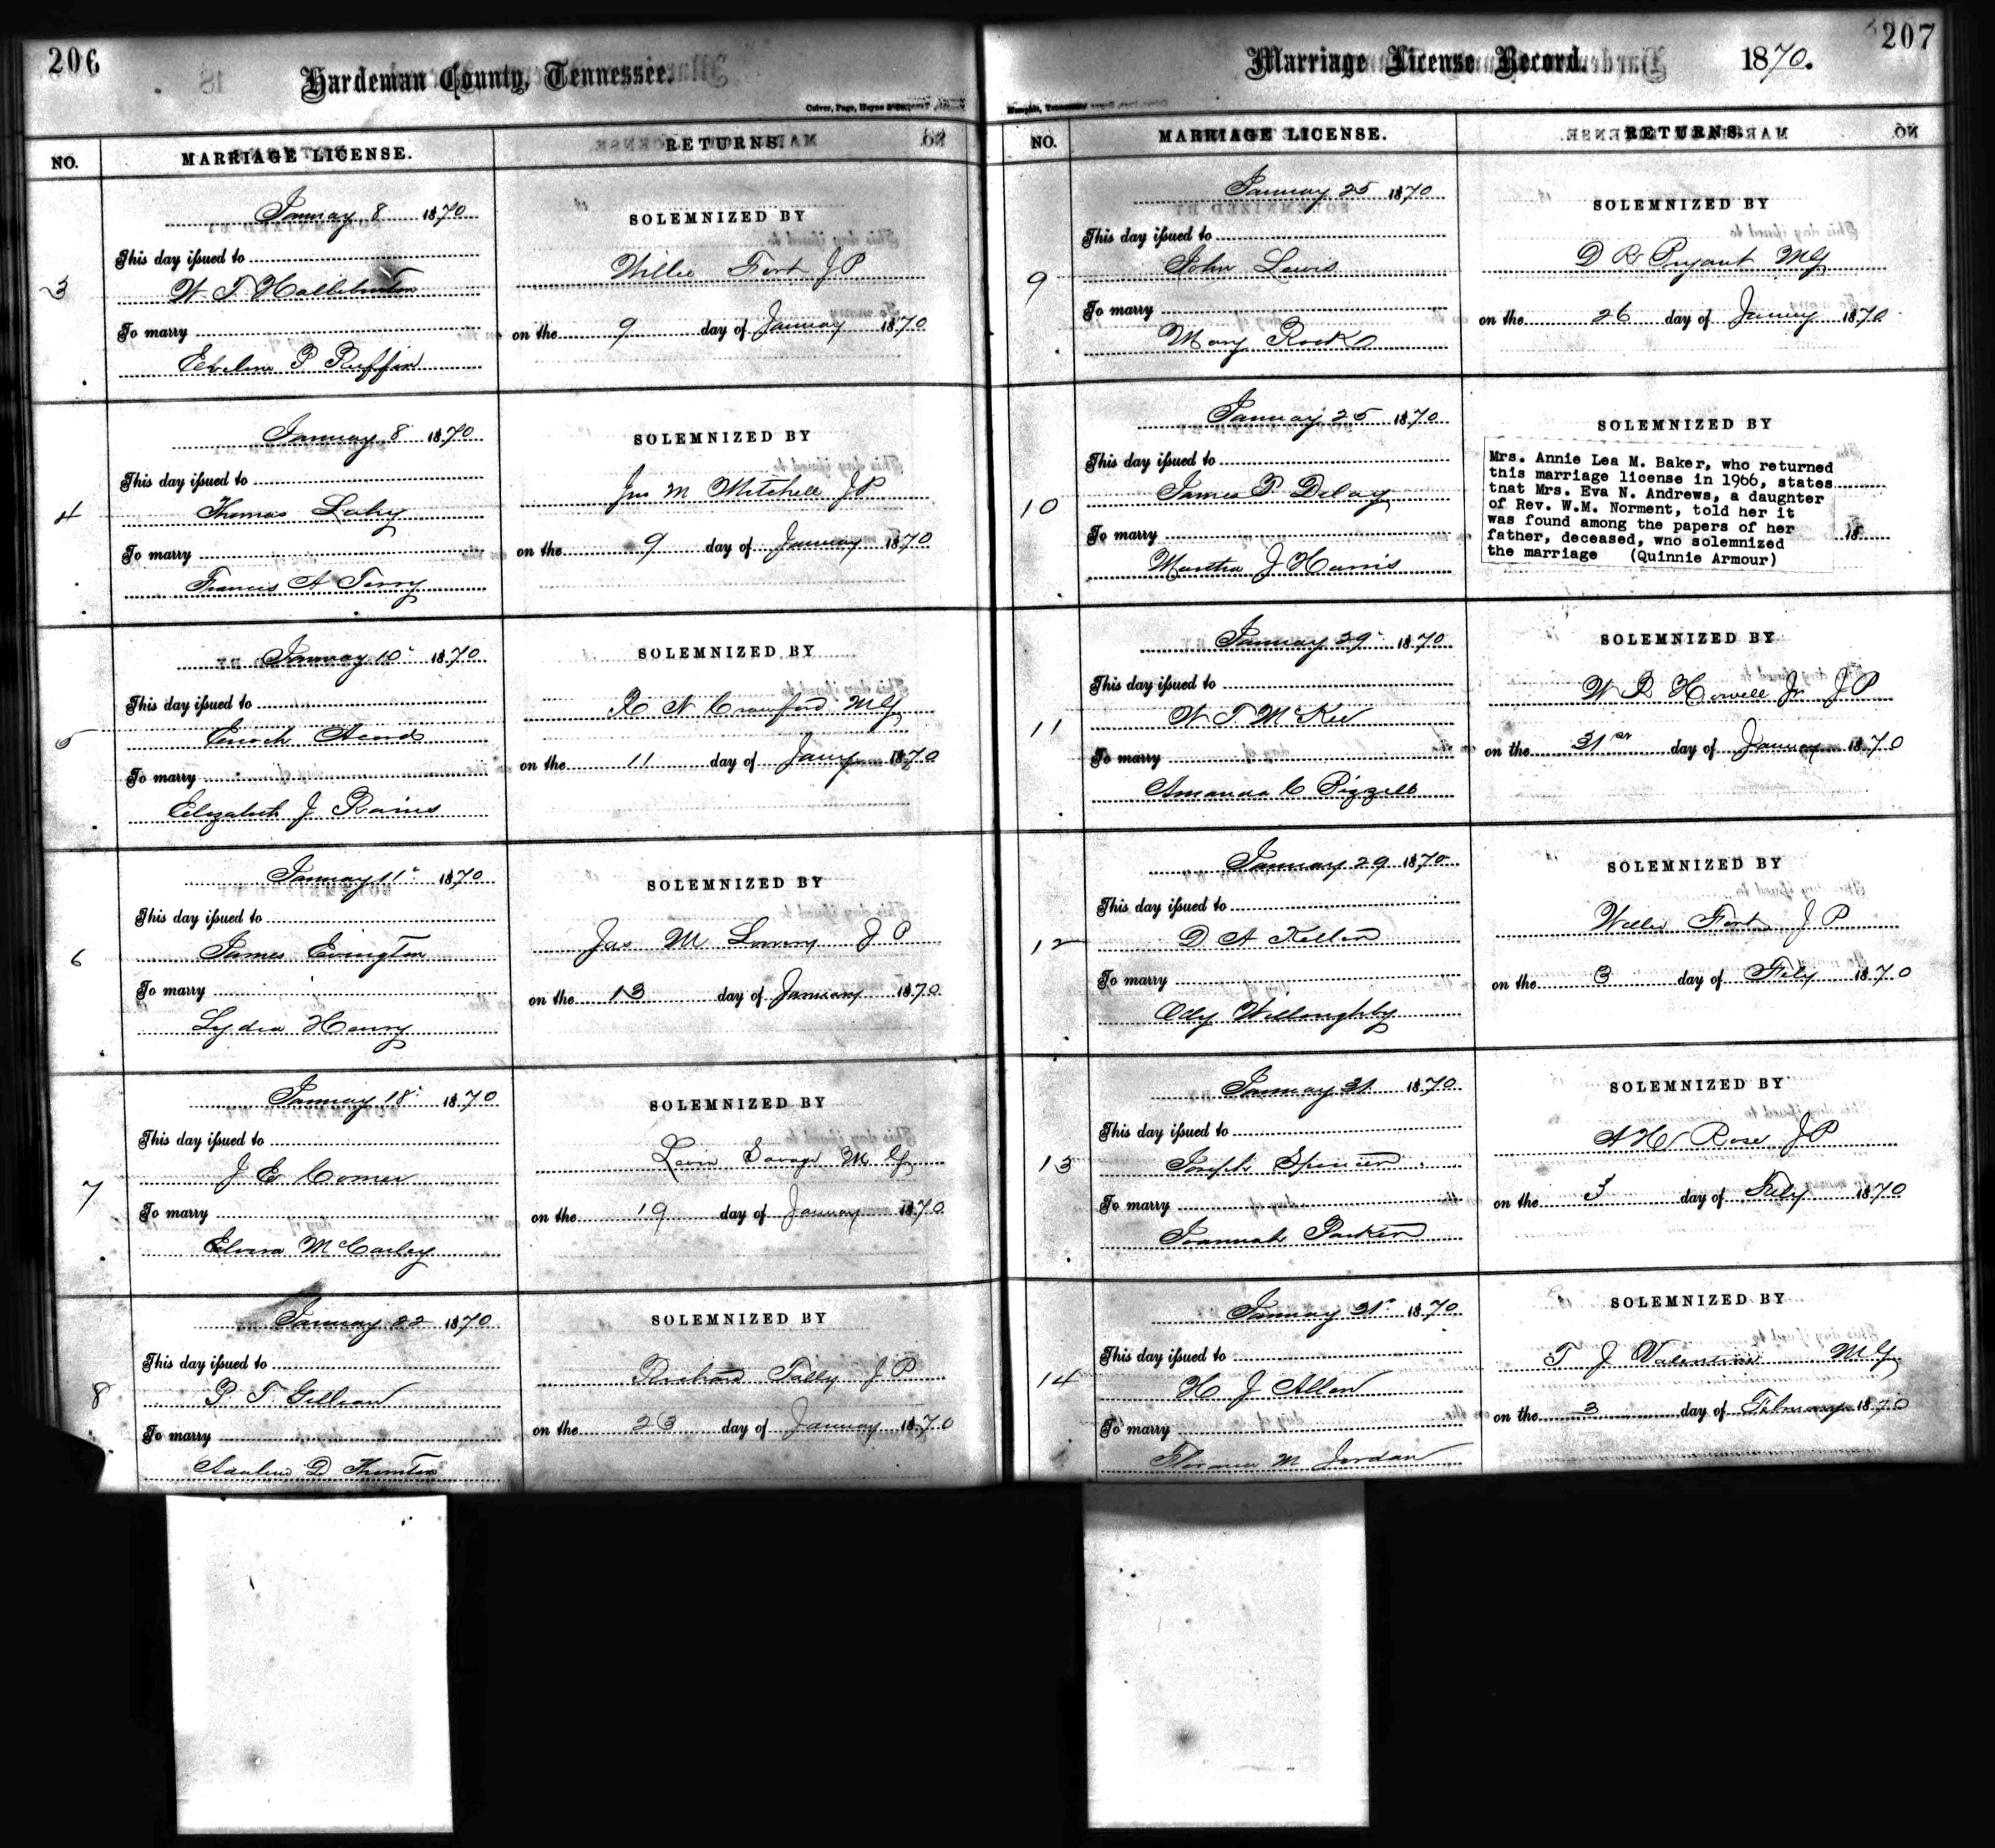 206
Hardeman County, Tennessee.
NO.
MARRIAGE LICENSE.
RETURNS.
3
January 8 1870
This day issued to
W T Halliburton
To marry
Evelina P Ruffin
SOLEMNIZED BY
Willie Fort J P
on the 9 day of January 1870
4
January 8 1870
This day issued to
Thomas
To marry
Francis A Terry
SOLEMNIZED BY
Jno M Mitchell J P
on the 9 day of January 1870
5
January 10 1870
This day issued to
Enoch
To marry
Elizabeth J Rains
SOLEMNIZED BY
R N Crawford M G
on the 11 day of Jany 1870
6
January 11 1870
This day issued to
James Evington
To marry
Lydia Henry
SOLEMNIZED BY
Jas M J P
on the 13 day of January 1870
7
January 18 1870
This day issued to
J E Comer
To marry
Elvira McCarley
SOLEMNIZED BY
Levin Savage M G
on the 19 day of January 1870
8
January 22 1870
This day issued to
P. T. Gilliam
To marry
D Thornton
SOLEMNIZED BY
Richard Tally J P
on the 23 day of January 1870
207
Marriage License Record. 1870.
NO.
MARRIAGE LICENSE.
RETURNS.
9
January 25 1870
This day issued to
John Lewis
To marry
Mary
SOLEMNIZED BY
D R Bryant M G
on the 26 day of January 1870
10
January 25 1870
This day issued to
James P Deloay
To marry
Martha J Harris
SOLEMNIZED BY
Mrs. Annie Lea M. Baker, who returned
this marriage license in 1966, states
that Mrs. Eva N. Andrews, a daughter
of Rev. W.M. Norment, told her it
was found among the papers of her
father, deceased, who solemnized
the marriage (Quinnie Armour)
18
11
January 29 1870
This day issued to
W T McKee
To marry
Amanda C Pizzell
SOLEMNIZED BY
W R Howell Jr J P
on the 31st day of January 1870
12
January 29 1870
This day issued to
D A Keller
To marry
Ody Willoughby
SOLEMNIZED BY
Willie Fort J P
on the 3 day of Feby 1870
13
January 31 1870
This day issued to
Joseph Spencer
To marry
Joannah Parker
SOLEMNIZED BY
A H Rose J P
on the 3 day of Feby 1870
14
January 31 1870
This day issued to
H J Allen
To marry
Florence M Jordan
SOLEMNIZED BY
T J Valentine M G
on the 3 day of February 1870